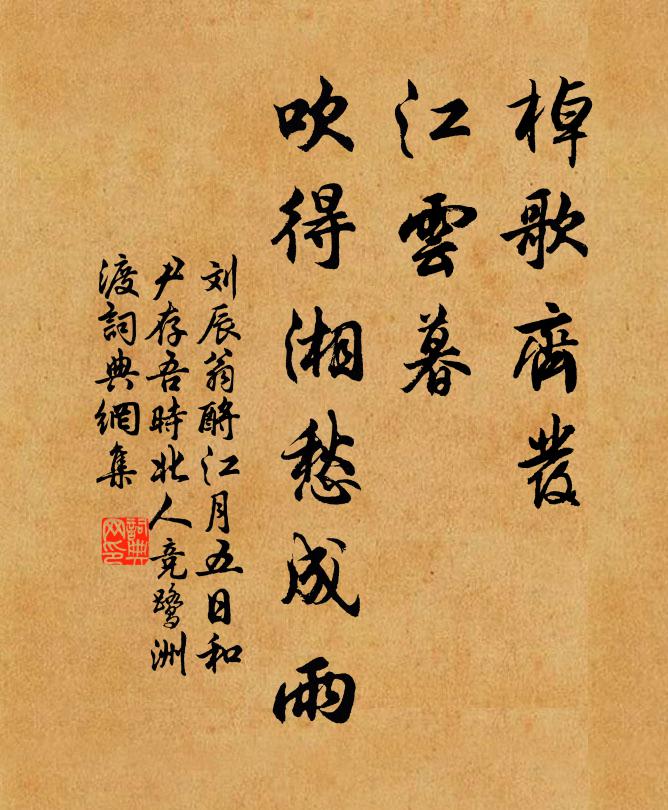 棹歌齊發
江雲暮
吹得湘愁成雨
刘辰翁酹江月五日和
尹存吾時北人竞鹭洲
渡詞典網集
詞典网印